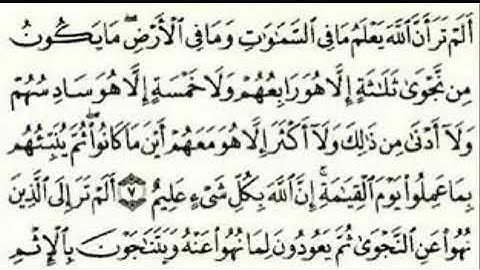 أَلَمْ تَرَ أَنَّ ٱللَّهَ يَعْلَمُ مَا فِى ٱلسَّمَٰوَٰتِ وَمَا فِى ٱلْأَرْضِ ۖ مَا يَكُونُ
مِن نَّجْوَىٰ ثَلَٰثَةٍ إِلَّا هُوَ رَابِعُهُمْ وَلَا خَمْسَةٍ إِلَّا هُوَ سَادِسُهُمْ
وَلَآ أَدْنَىٰ مِن ذَٰلِكَ وَلَآ أَكْثَرَ إِلَّا هُوَ مَعَهُمْ أَيْنَ مَا كَانُوا۟ ۖ ثُمَّ يُنَبِّئُهُم
بِمَا عَمِلُوا۟ يَوْمَ ٱلْقِيَٰمَةِ ۚ إِنَّ ٱللَّهَ بِكُلِّ شَىْءٍ عَلِيمٌ ٧ أَلَمْ تَرَ إِلَى ٱلَّذِينَ
نُهُوا۟ عَنِ ٱلنَّجْوَىٰ ثُمَّ يَعُودُونَ لِمَا نُهُوا۟ عَنْهُ وَيَتَنَٰجَوْنَ بِٱلْإِثْمِ